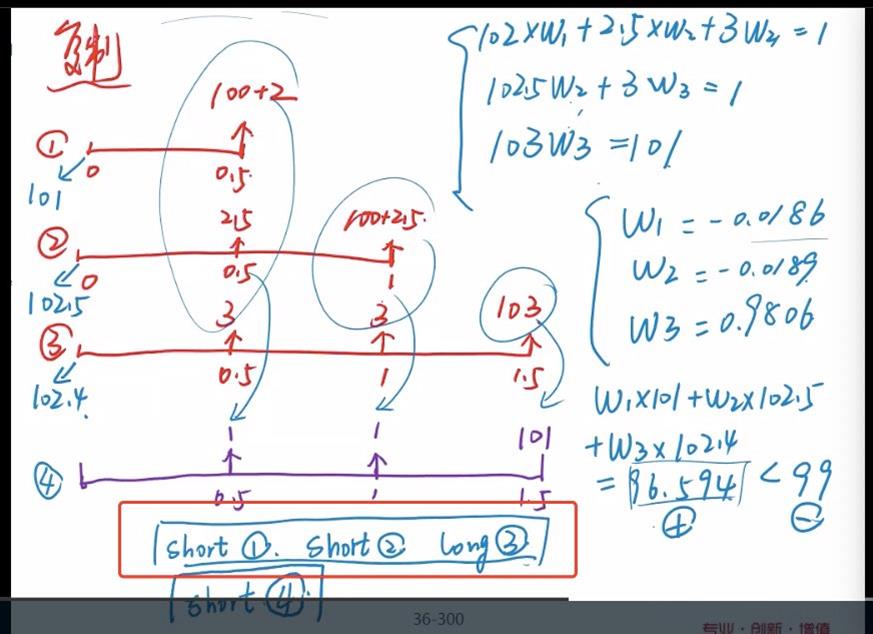 复制
102×W₁+2.5×W₂+3W₃=1
102.5W₂+3W₃=1
103W₃=101
100+2
① 0 0.5
101
2.5 100+2.5
② 0 0.5 1
102.5
3 3 103
③ 0.5 1 1.5
102.4
W₁=-0.0186
W₂=-0.0189
W₃=0.9806
W₁×101+W₂×102.5
+W₃×102.4
=96.594<99
⊕ ⊖
1 1 101
④ 0.5 1 1.5
short ①. short ② long ③
short ④.
36-300
专业·创新·增值